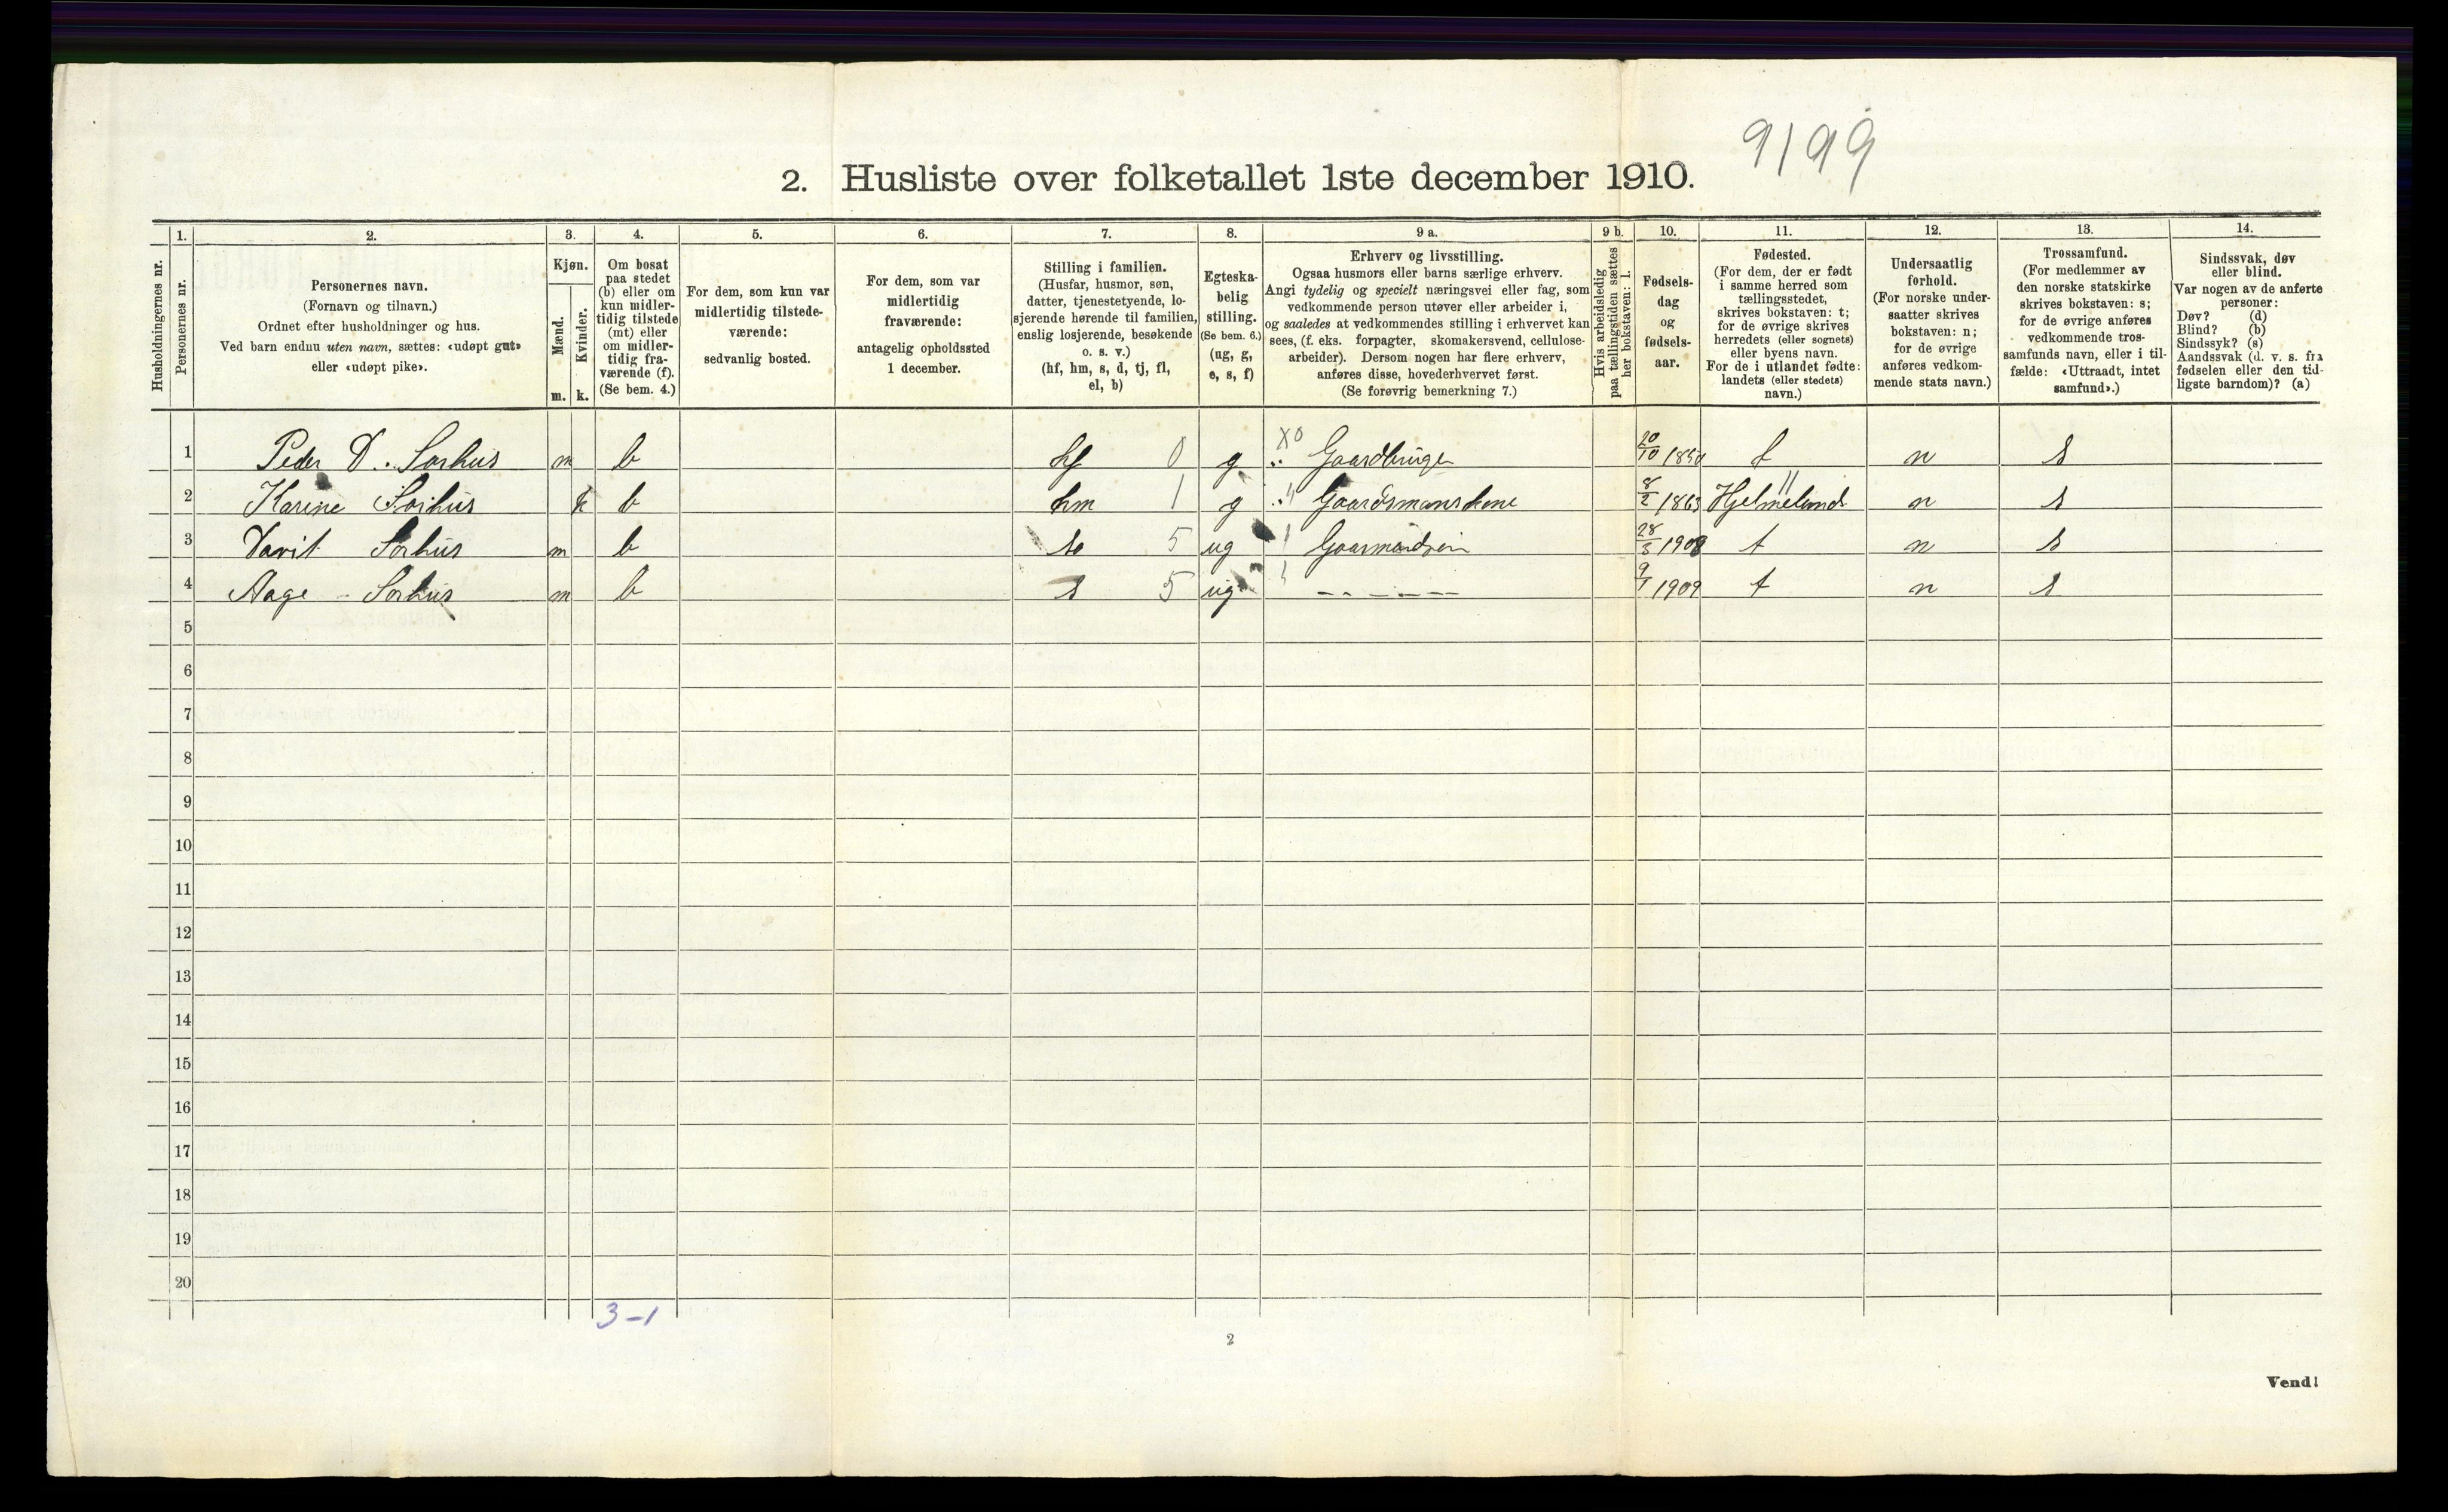 9199
2. Husliste over folketallet 1ste december 1910.
Husholdningernes nr.
1. Personernes nr.
2. Personernes navn.
(Fornavn og tilnavn.)
Ordnet efter husholdninger og hus.
Ved barn endnu uten navn, sættes: «udøpt gut»
eller «udøpt pike».
3. Kjøn.
Mænd. Kvinder.
m. k.
4. Om bosat
paa stedet
(b) eller om
kun midler-
tidig tilstede
(mt) eller
om midler-
tidig fra-
værende (f).
(Se bem. 4.)
5. For dem, som kun var
midlertidig tilstede-
værende:
sedvanlig bosted.
6. For dem, som var
midlertidig
fraværende:
antagelig opholdssted
1 december.
7. Stilling i familien.
(Husfar, husmor, søn,
datter, tjenestetyende, lo-
sjerende hørende til familien,
enslig losjerende, besøkende
o. s. v.)
(hf, hm, s, d, tj, fl,
el, b)
8. Egteska-
belig
stilling.
(Se bem. 6.)
(ug, g,
e, s, f)
9 a. Erhverv og livsstilling.
Ogsaa husmors eller barns særlige erhverv.
Angi tydelig og specielt næringsvei eller fag, som
vedkommende person utøver eller arbeider i,
og saaledes at vedkommendes stilling i erhvervet kan
sees, (f. eks. forpagter, skomakersvend, cellulose-
arbeider). Dersom nogen har flere erhverv,
anføres disse, hovederhvervet først.
(Se forøvrig bemerkning 7.)
9 b. Hvis arbeidsledig
paa tællingstiden sættes
her bokstaven: l.
10. Fødsels-
dag
og
fødsels-
aar.
11. Fødested.
(For dem, der er født
i samme herred som
tællingsstedet,
skrives bokstaven: t;
for de øvrige skrives
herredets (eller sognets)
eller byens navn.
For de i utlandet fødte:
landets (eller stedets)
navn.)
12. Undersaatlig
forhold.
(For norske under-
saatter skrives
bokstaven: n;
for de øvrige
anføres vedkom-
mende stats navn.)
13. Trossamfund.
(For medlemmer av
den norske statskirke
skrives bokstaven: s;
for de øvrige anføres
vedkommende tros-
samfunds navn, eller i til-
fælde: «Uttraadt, intet
samfund».)
14. Sindssvak, døv
eller blind.
Var nogen av de anførte
personer:
Døv? (d)
Blind? (b)
Sindssyk? (s)
Aandssvak (d. v. s. fra
fødselen eller den tid-
ligste barndom)? (a)
1 Peder D. Sørhus m b hf 0 g X0 Gaardbruger 20/10 t n s
2 Karine Sørhus k b hm 1 g Gaardsmanskone 8/2 1863 Hjelmeland n s
3 Davit Sørhus m b s 5 ug Gaarmandsøn 28/8 1908 t n s
4 Aage Sørhus m b s 5 ug ————— 9/1 1909 t n s
5
6
7
8
9
10
11
12
13
14
15
16
17
18
19
20
3-1
2
Vend!